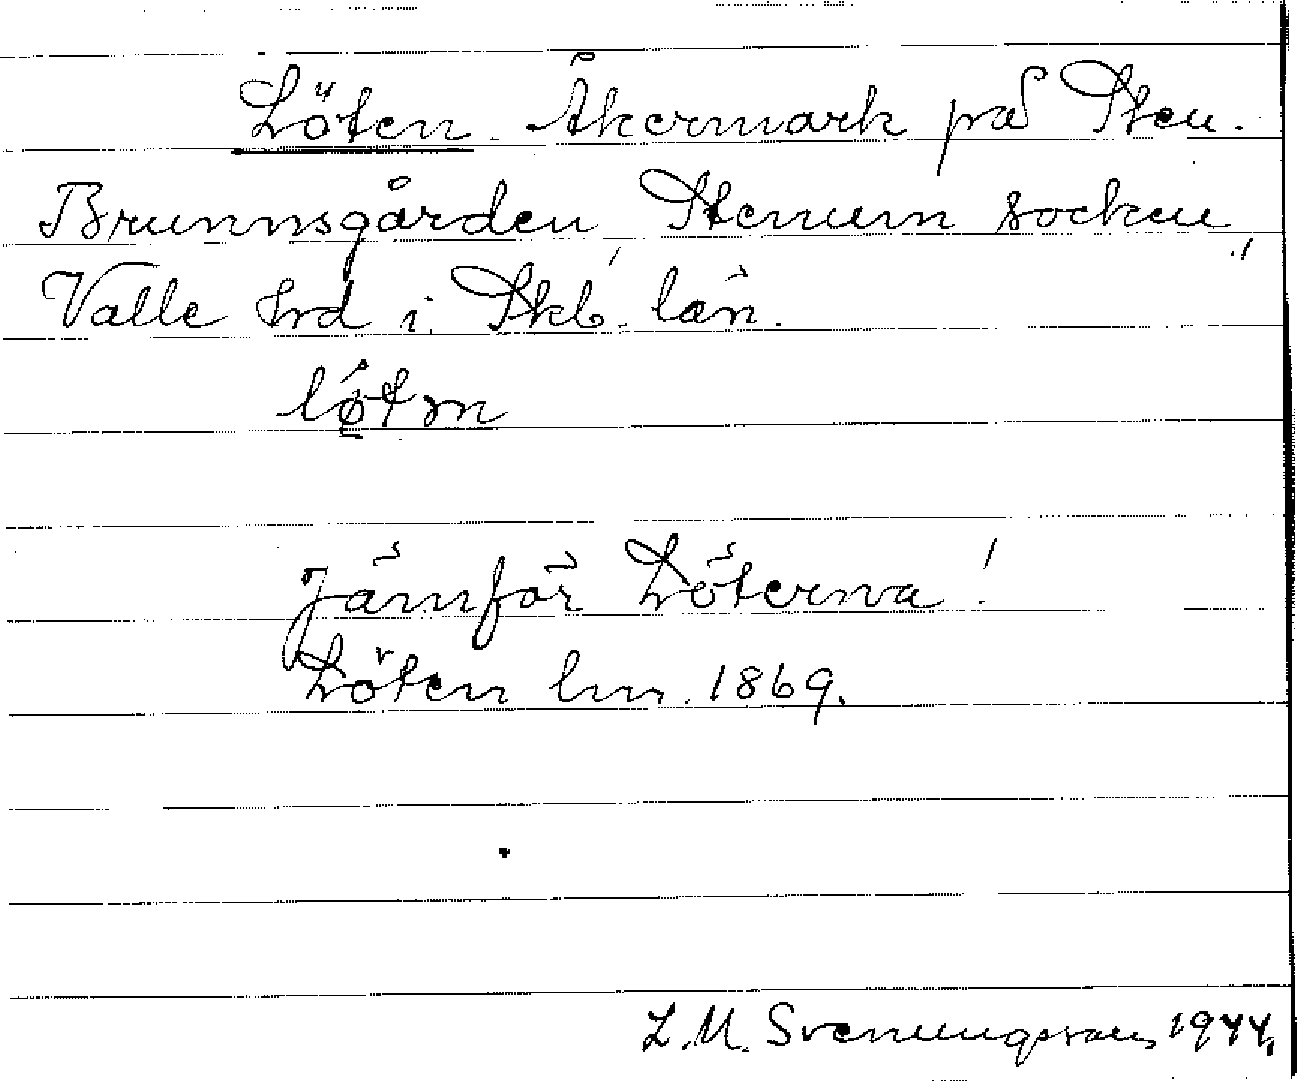 Löten. Åkermark på Sten.
Brunnsgården, Stenum socken,
Valle hrd i Skb. län.
lø̀tn
Jämför Löterna!
Löten lm. 1869.
L.M. Svenungsson, 1944.